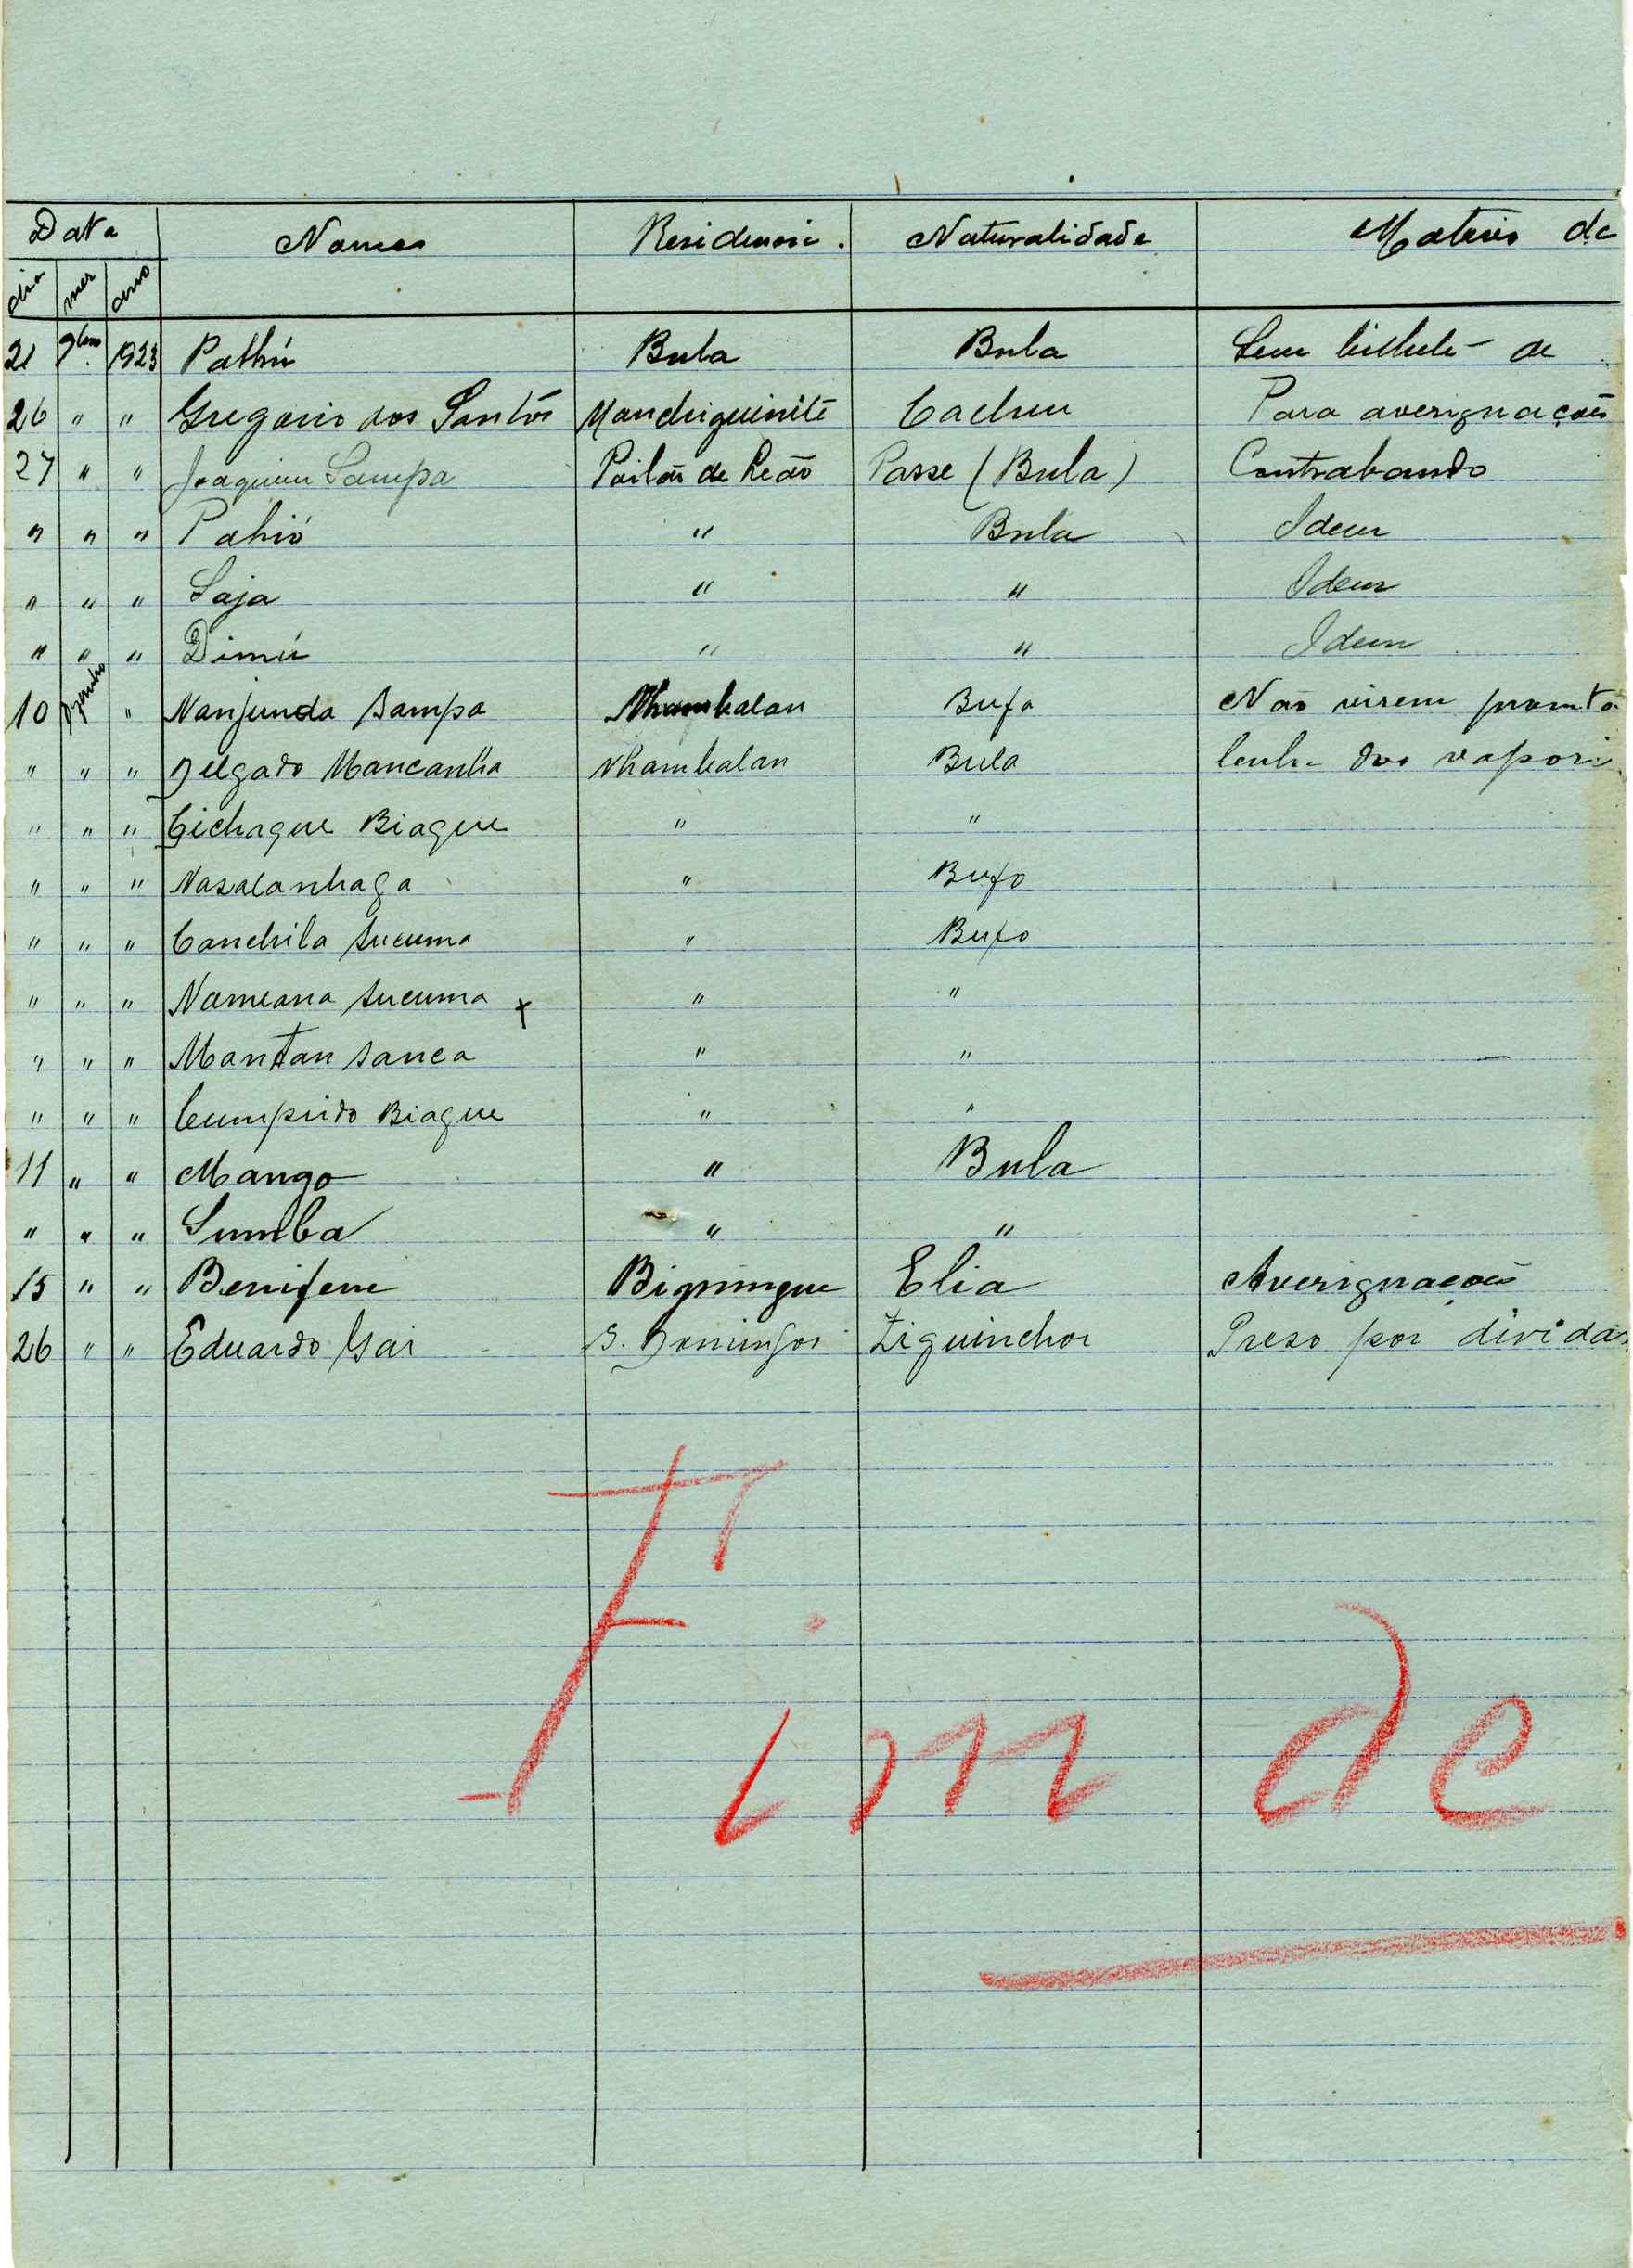 Data Nomes Residencia. Naturalidade Motivo de
dia mez ano
21 9bro 1923 Pathú Bula Bula Sem bilhete de
26 " " Gregorio dos Santos Cacheu Para averiguações
27 " " Joaquim Sampa Poilão de Leão Passe (Bula) Contrabando
" " " Pahió " Bula Idem
" " " Saja " " Idem
" " " Dimú " " Idem
10 Dezembro " Nanjunda Sampa Nhambalan Bufa Não virem
" " " Delgado Mancanha Nhambalan Bula lenha
" " " Cichaque Biague " "
" " " Nasalanhaga " Bufo
" " " Canchila Sucuma " Bufo
" " " Nameana Sucuma x " "
" " " Mantan Sanca " "
" " " Cumprido Biague " "
11 " " Mango " Bula
" " " Sumba " "
15 " " Benifene Elia Averiguações
26 " " Eduardo Gai S. Domingos Ziguinchor Preso por dividas
Fim de